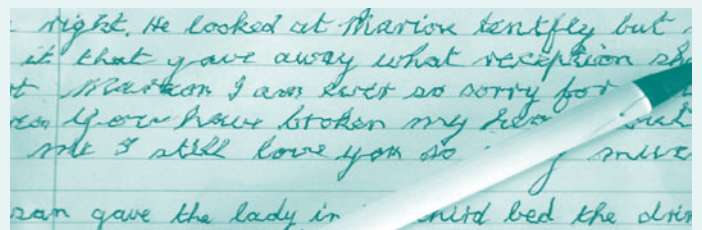 right. He looked at Marion tentfly but
it that gave away what reception
Marion I am ever so sorry for
You have broken my
me I still love you so
gave the lady in bed the